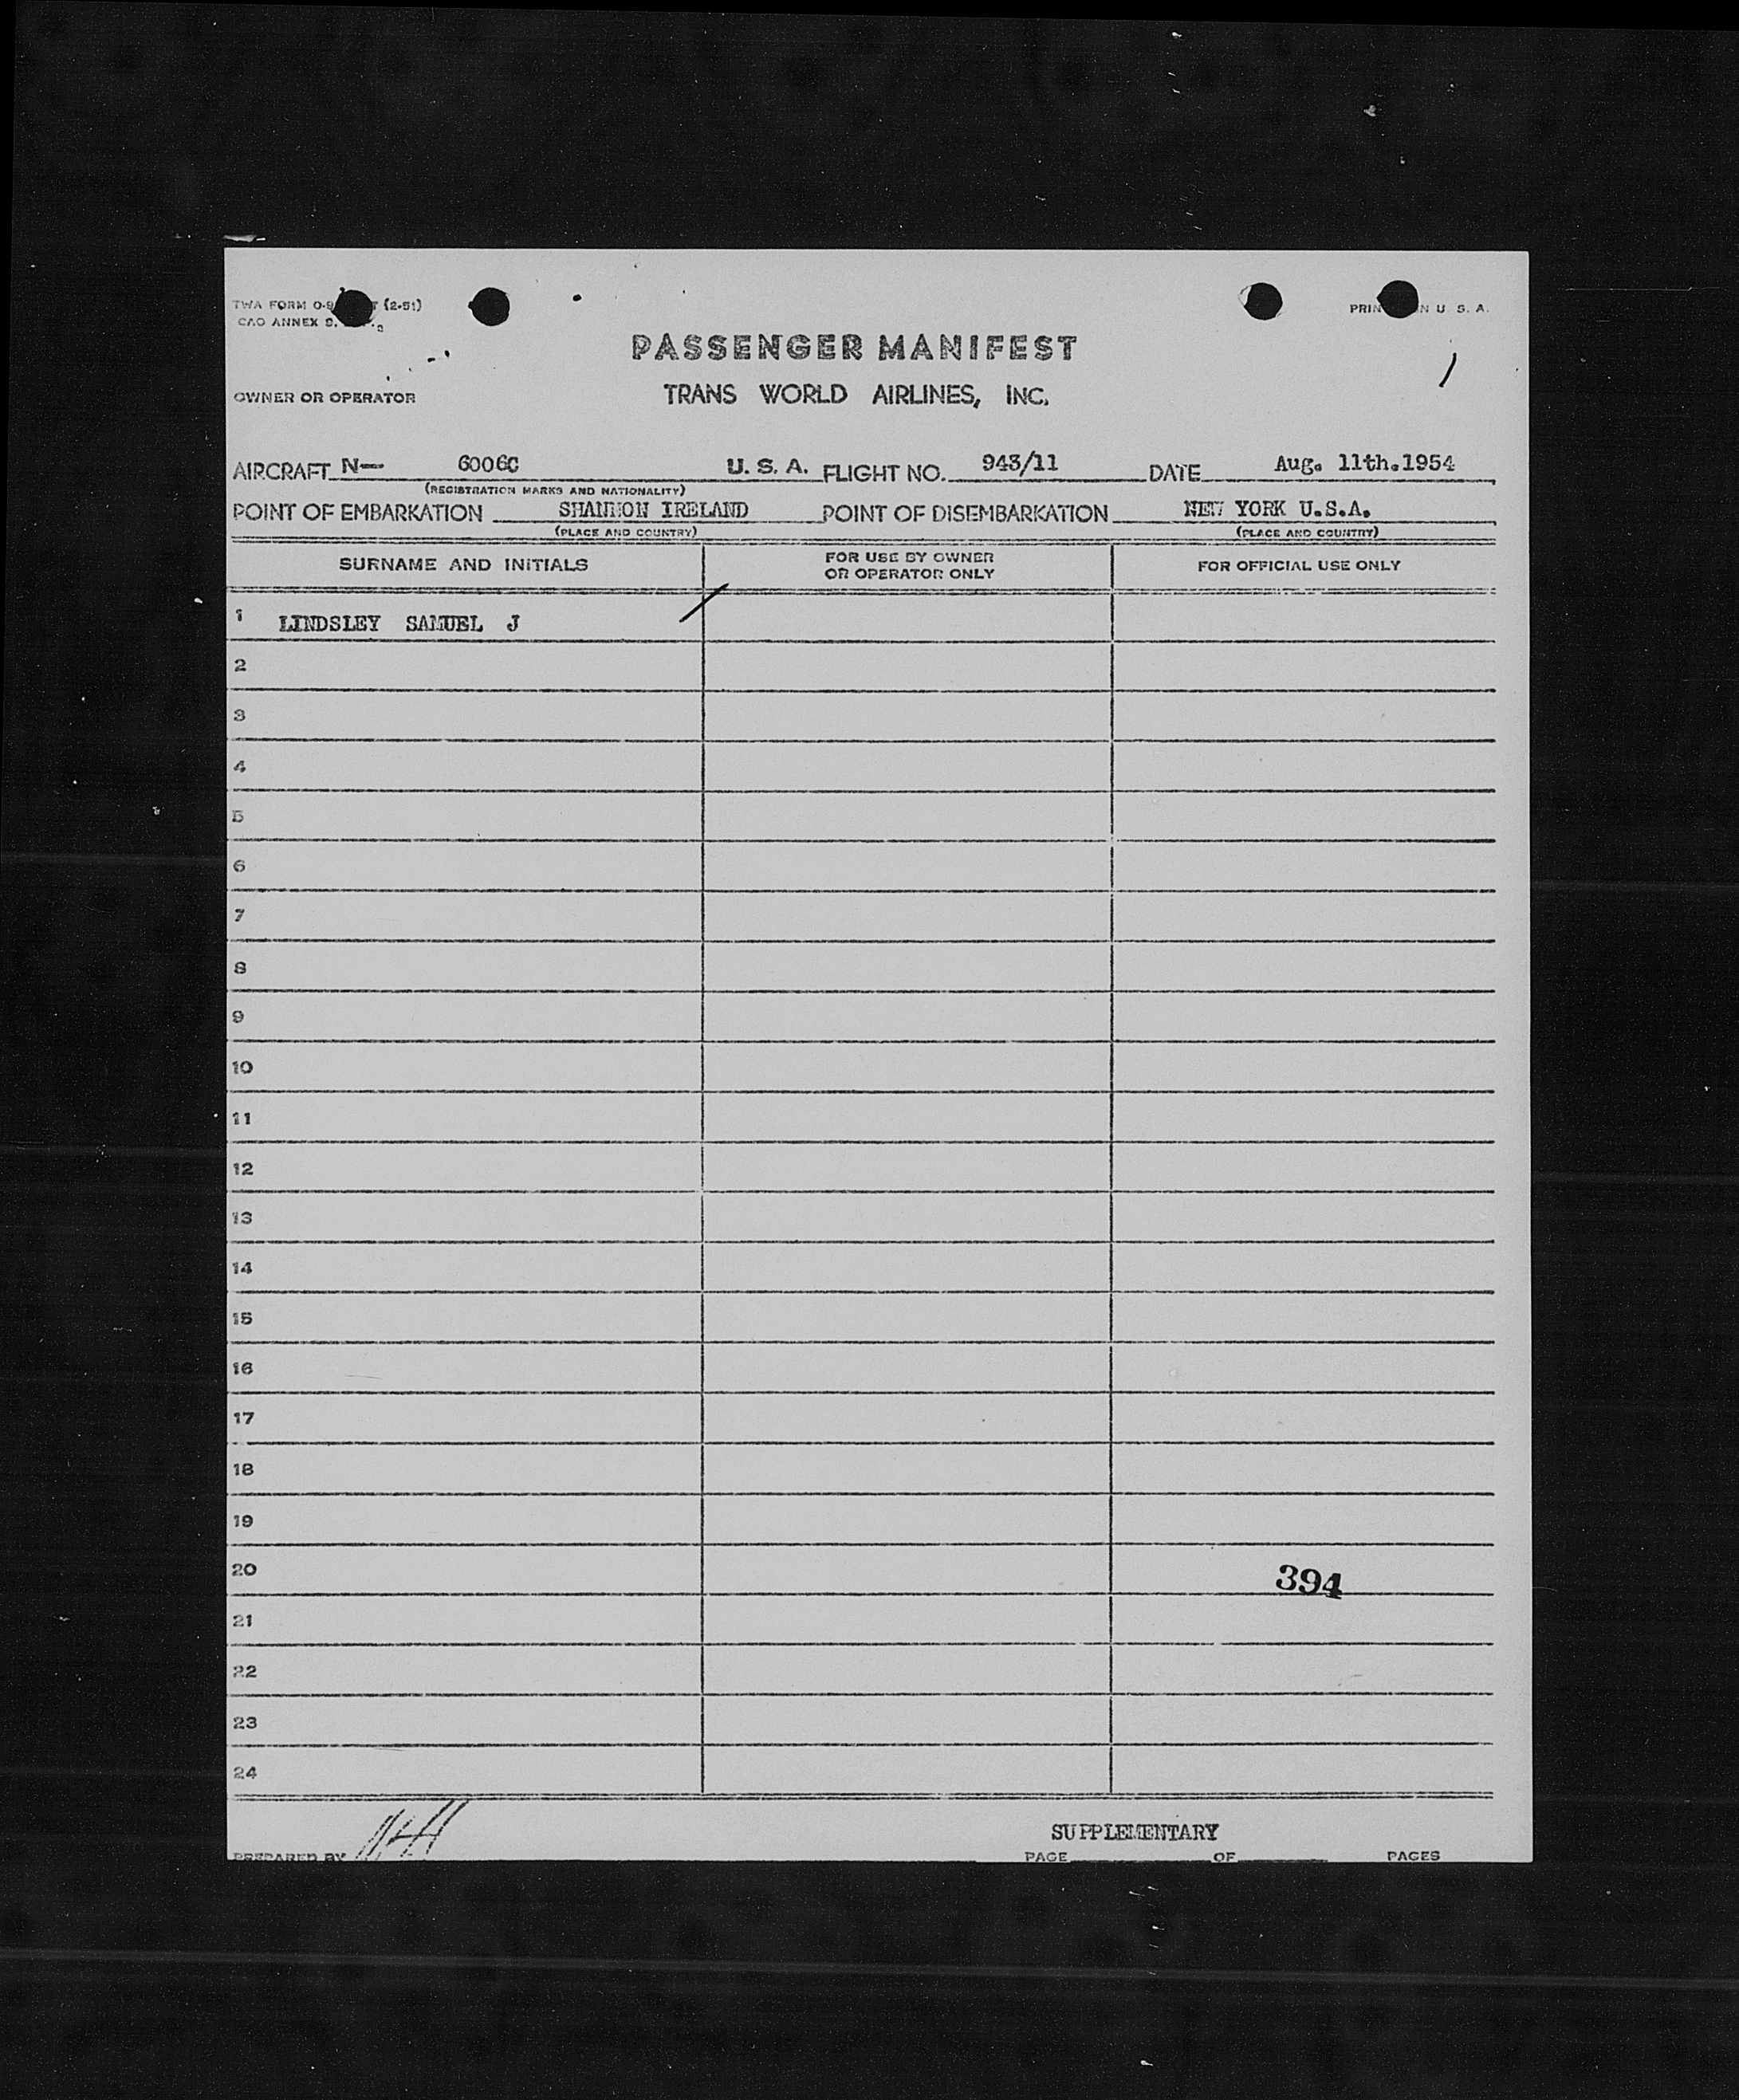 TWA FORM O-9 (2-51)
CAO ANNEX 9.
PRIN IN U. S. A.
PASSENGER MANIFEST
OWNER OR OPERATOR TRANS WORLD AIRLINES, INC.
AIRCRAFT N— 6006C U. S. A. FLIGHT NO. 943/11 DATE Aug. 11th.1954
(REGISTRATION MARKS AND NATIONALITY)
POINT OF EMBARKATION SHANNON IRELAND POINT OF DISEMBARKATION NEW YORK U.S.A.
(PLACE AND COUNTRY) (PLACE AND COUNTRY)
SURNAME AND INITIALS FOR USE BY OWNER OR OPERATOR ONLY FOR OFFICIAL USE ONLY
1 LINDSLEY SAMUEL J
2
3
4
5
6
7
8
9
10
11
12
13
14
15
16
17
18
19
20 394
21
22
23
24
SUPPLEMENTARY
PREPARED BY PAGE OF PAGES